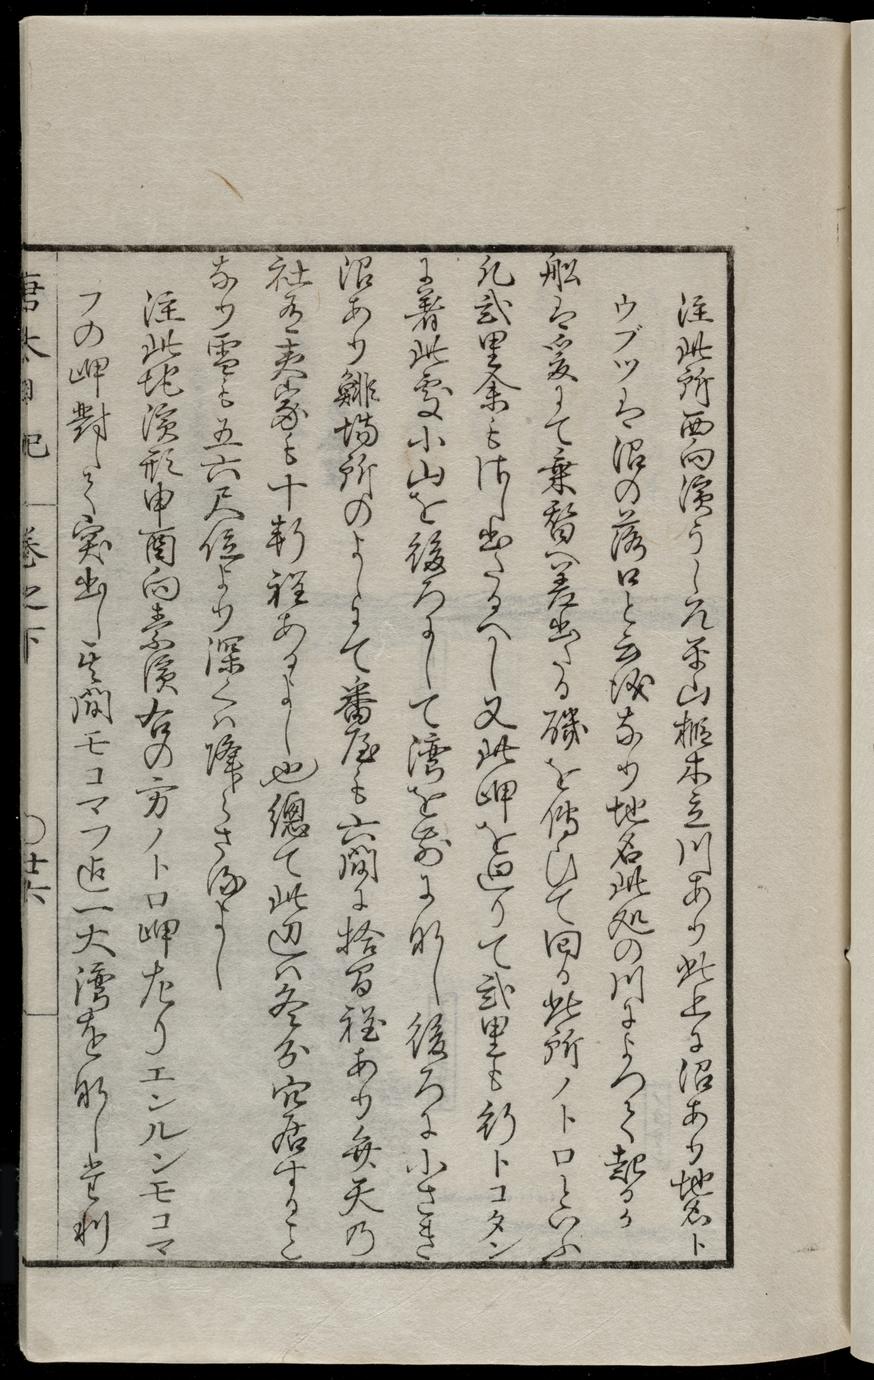 注此所西向濱うしろ平山椴木立川あり此上に沼あり地名ト
ウブツは沼の落口と云儀なり地名此処の川によつて起るか
船は爰にて乗替へ差出たる磯を傳ひて回る此所ノトロといふ
凡弐里余も出たるへし又此岬を廻りて弐里も行トコタン
に着此處小山を後ろにして湾を前に形し後ろに小さき
沼あり鯡場所のよしにて番屋も六間に拾間程あり弁天の
社有夷家も十軒程あるよし也總て此辺は冬分穴居すること
なり雪も五六尺位より深くは降らさるよし
注此地濱形申酉向素濱右の方ノトロ岬左リエンルンモコマ
フの岬對して突出し其間モコマフ迄一大湾を形し
唐太日記 巻之下 ○廿六